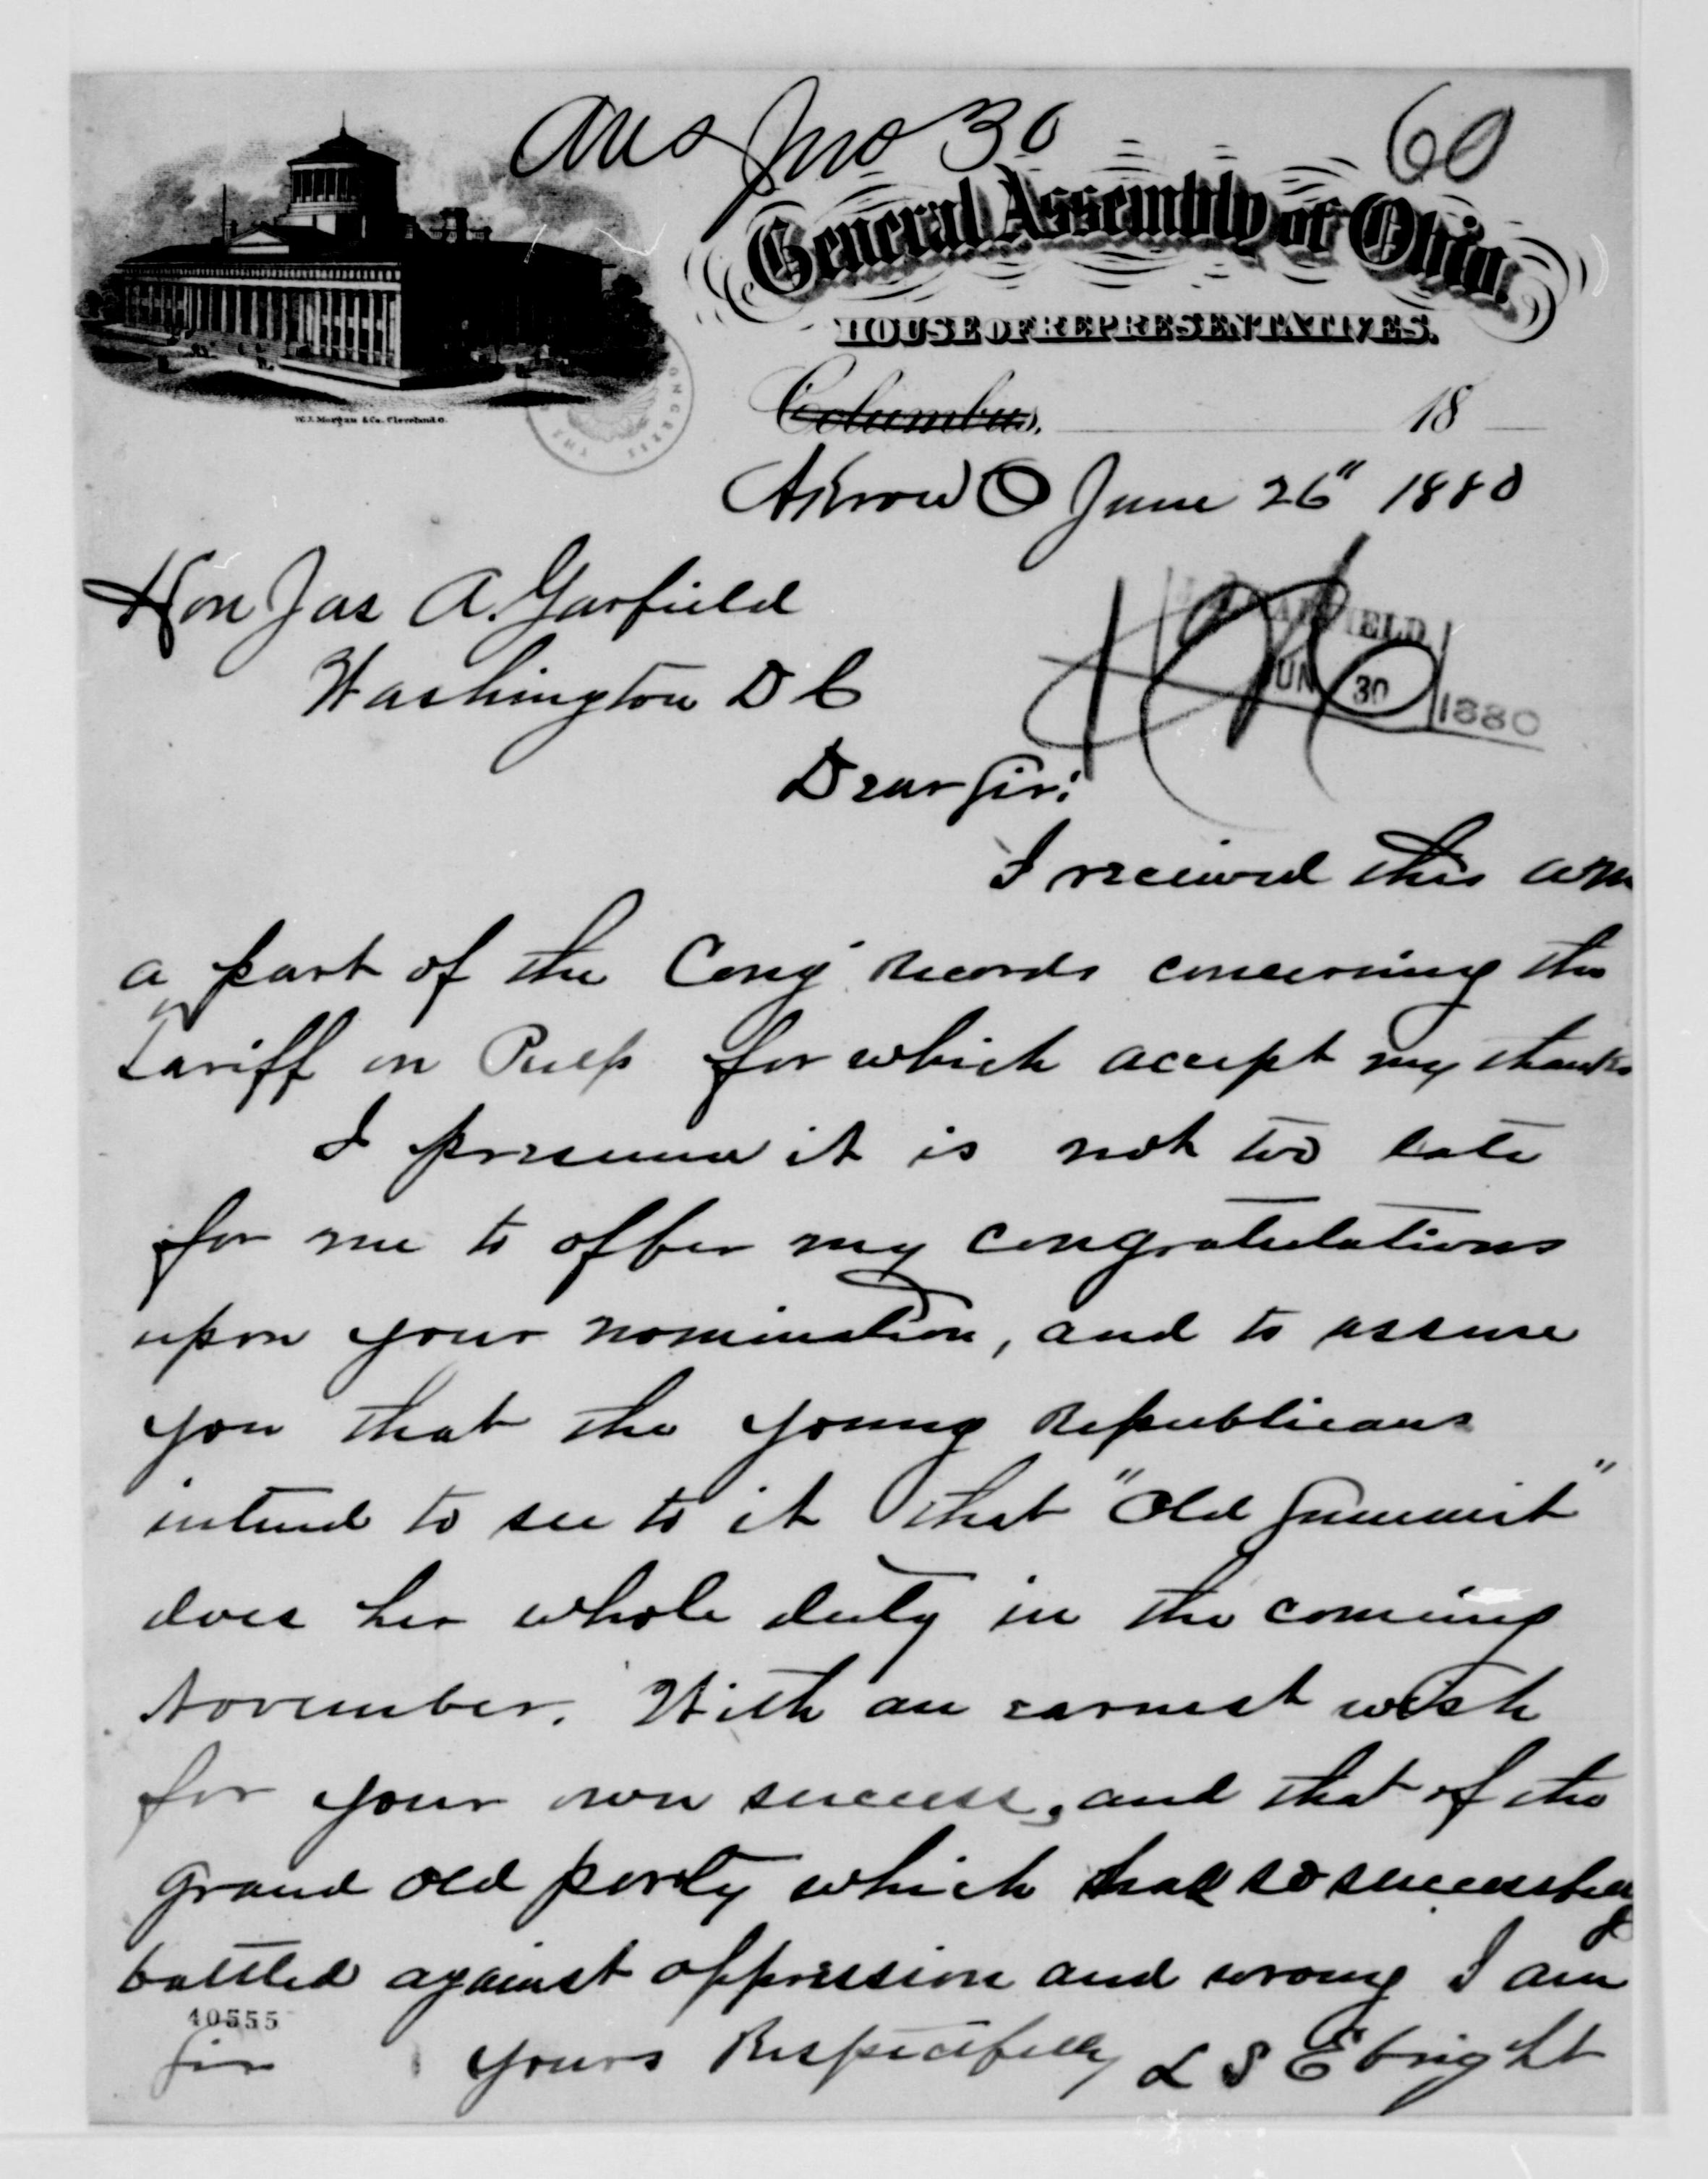 Ans Jno 30
60
General Assembly of Ohio,
HOUSE OF REPRESENTATIVES.
W.J. Morgan & Co. Cleveland O.
Columbus, 18
Akron O June 26" 1880
Hon Jas A. Garfield
Washington D C
J. A. GARFIELD,
JUN 30 1880
Dear Sir:
I received this am
a part of the Cong' Records concerning the
tariff on Pulp for which accept my thanks
I presume it is not too late
for me to offer my congratulations
upon your nomination, and to assure
you that the young Republicans
intend to see to it that "Old Summit"
does her whole duty in the coming
November. With an earnest wish
for your own success, and that of the
grand old party which has so successfully
battled against oppression and wrong I am
40555
Sir yours Respectfully L S Ebright